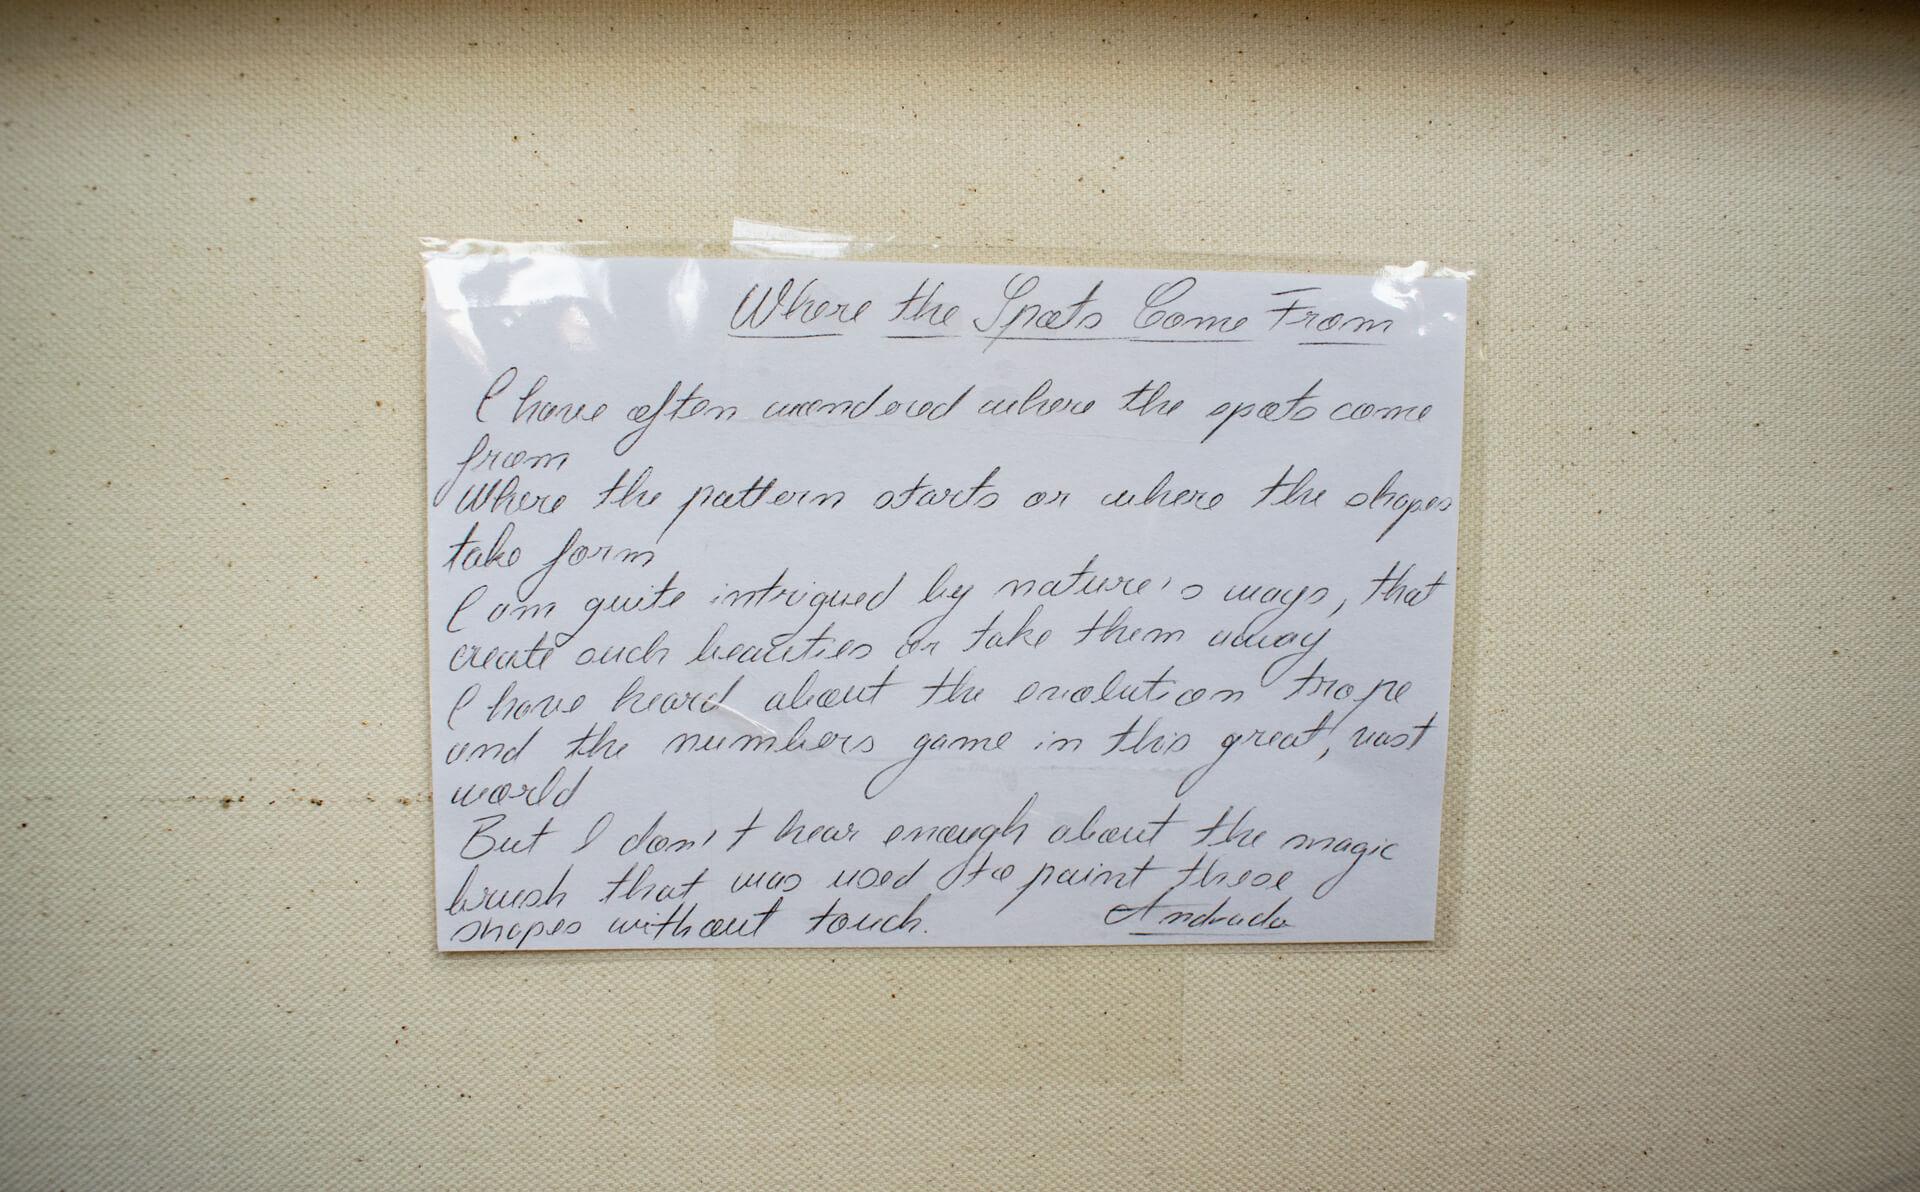 Where the Spots Come From
I have often wondered where the spots come
from
Where the pattern starts or where the shapes
take form
I am quite intrigued by nature's ways, that
create such beauties or take them away
I have heard about the evolution trope
and the numbers game in this great, vast
world
But I don't hear enough about the magic
brush that was used to paint these
shapes without touch. Andrada